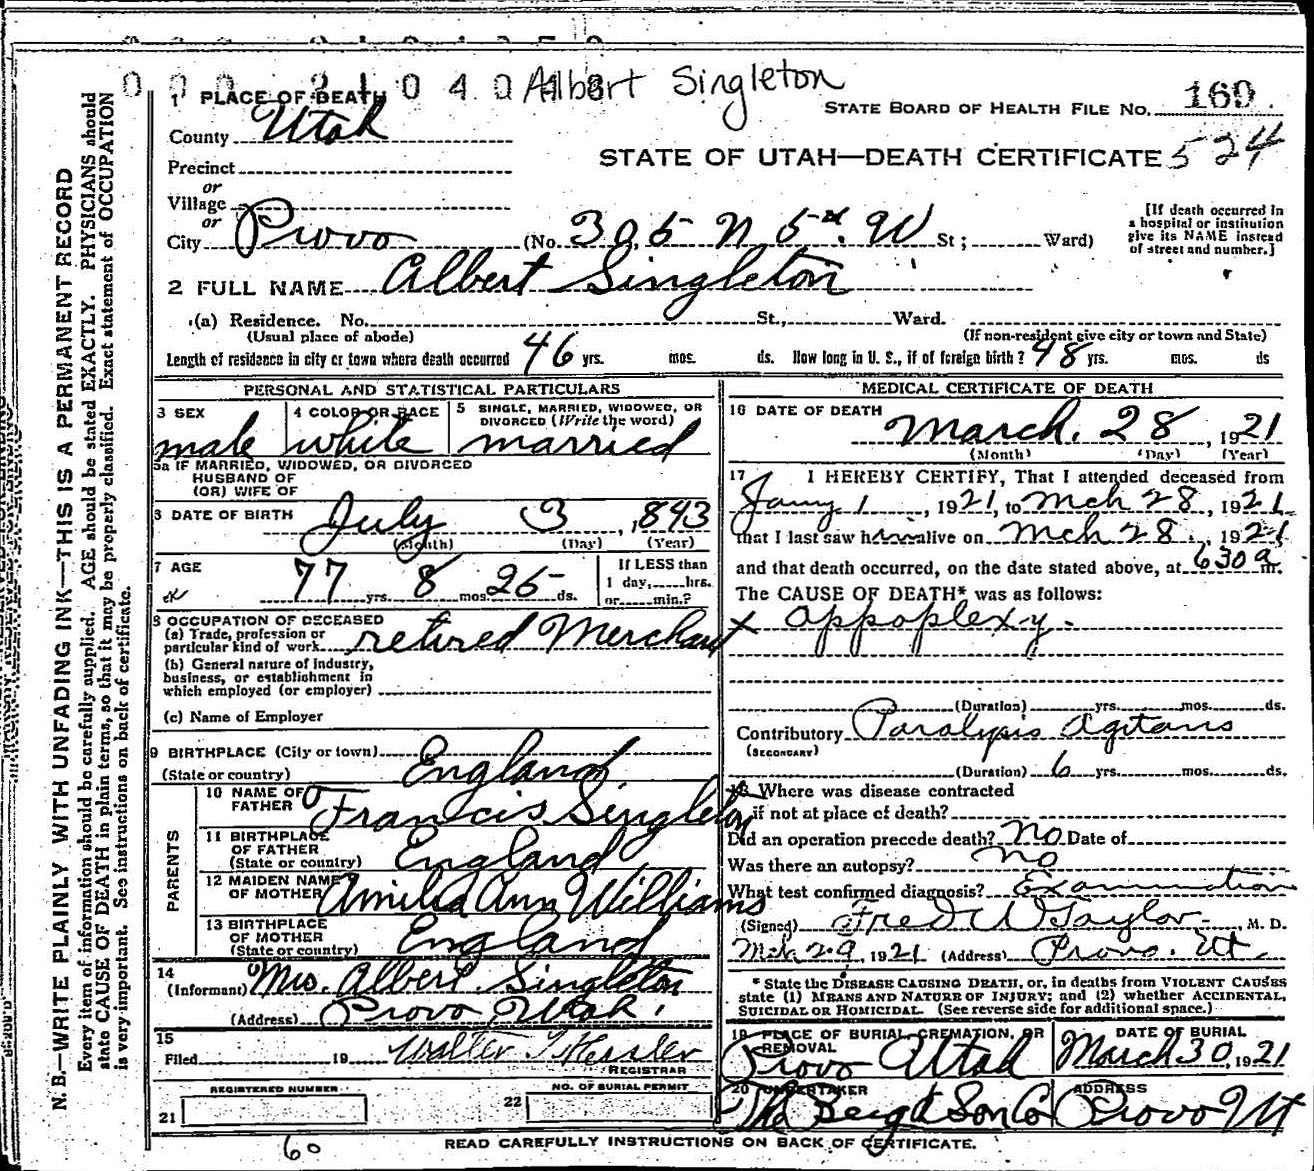 Albert Singleton
1 PLACE OF DEATH
STATE BOARD OF HEALTH FILE NO. 169
County Utah
STATE OF UTAH—DEATH CERTIFICATE 524
Precinct
or
Village
or
City Provo (No. 305 N 5th W St; Ward)
[If death occurred in a hospital or institution give its NAME instead of street and number.]
2 FULL NAME Albert Singleton
(a) Residence. No. St., Ward.
(Usual place of abode) (If non-resident give city or town and State)
Length of residence in city or town where death occurred 46 yrs. mos. ds. How long in U. S., if of foreign birth? 48 yrs. mos. ds
PERSONAL AND STATISTICAL PARTICULARS
3 SEX male
4 COLOR OR RACE white
5 SINGLE, MARRIED, WIDOWED, OR DIVORCED (Write the word) married
5a IF MARRIED, WIDOWED, OR DIVORCED
HUSBAND OF
(OR) WIFE OF
DATE OF BIRTH July 3, 1843
(Month) (Day) (Year)
7 AGE 77 yrs. 8 mos. 25 ds.
If LESS than 1 day, hrs. or min.?
8 OCCUPATION OF DECEASED
(a) Trade, profession or particular kind of work retired Merchant
(b) General nature of industry, business, or establishment in which employed (or employer)
(c) Name of Employer
9 BIRTHPLACE (City or town)
(State or country) England
PARENTS
10 NAME OF FATHER Francis Singleton
11 BIRTHPLACE OF FATHER (State or country) England
12 MAIDEN NAME OF MOTHER Amilia Ann Williams
13 BIRTHPLACE OF MOTHER (State or country) England
14
(Informant) Mrs. Albert Singleton
(Address) Provo Utah.
15
Filed 19 Walter T Hessler
REGISTRAR
REGISTERED NUMBER
21
NO. OF BURIAL PERMIT
22
MEDICAL CERTIFICATE OF DEATH
16 DATE OF DEATH March. 28, 1921
(Month) (Day) (Year)
17 I HEREBY CERTIFY, That I attended deceased from
Jany 1, 1921, to Mch 28, 1921
that I last saw him alive on Mch 28, 1921
and that death occurred, on the date stated above, at 630 a m.
The CAUSE OF DEATH* was as follows:
x appoplexy.
(Duration) yrs. mos. ds.
Contributory Paralysis agitans
(SECONDARY)
(Duration) 6 yrs. mos. ds.
18 Where was disease contracted
if not at place of death?
Did an operation precede death? no Date of
Was there an autopsy? no
What test confirmed diagnosis? Examination
(Signed) Fred W Taylor, M. D.
Mch 29, 1921 (Address) Provo. Ut.
* State the DISEASE CAUSING DEATH, or, in deaths from VIOLENT CAUSES
state (1) MEANS AND NATURE OF INJURY; and (2) whether ACCIDENTAL,
SUICIDAL OR HOMICIDAL. (See reverse side for additional space.)
19 PLACE OF BURIAL, CREMATION, OR REMOVAL Provo Utah
DATE OF BURIAL March 30, 1921
20 UNDERTAKER The Berg & Son Co
ADDRESS Provo Ut
60
READ CAREFULLY INSTRUCTIONS ON BACK OF CERTIFICATE.
N. B.—WRITE PLAINLY WITH UNFADING INK—THIS IS A PERMANENT RECORD
Every item of information should be carefully supplied. AGE should be stated EXACTLY. PHYSICIANS should
state CAUSE OF DEATH in plain terms, so that it may be properly classified. Exact statement of OCCUPATION
is very important. See instructions on back of certificate.